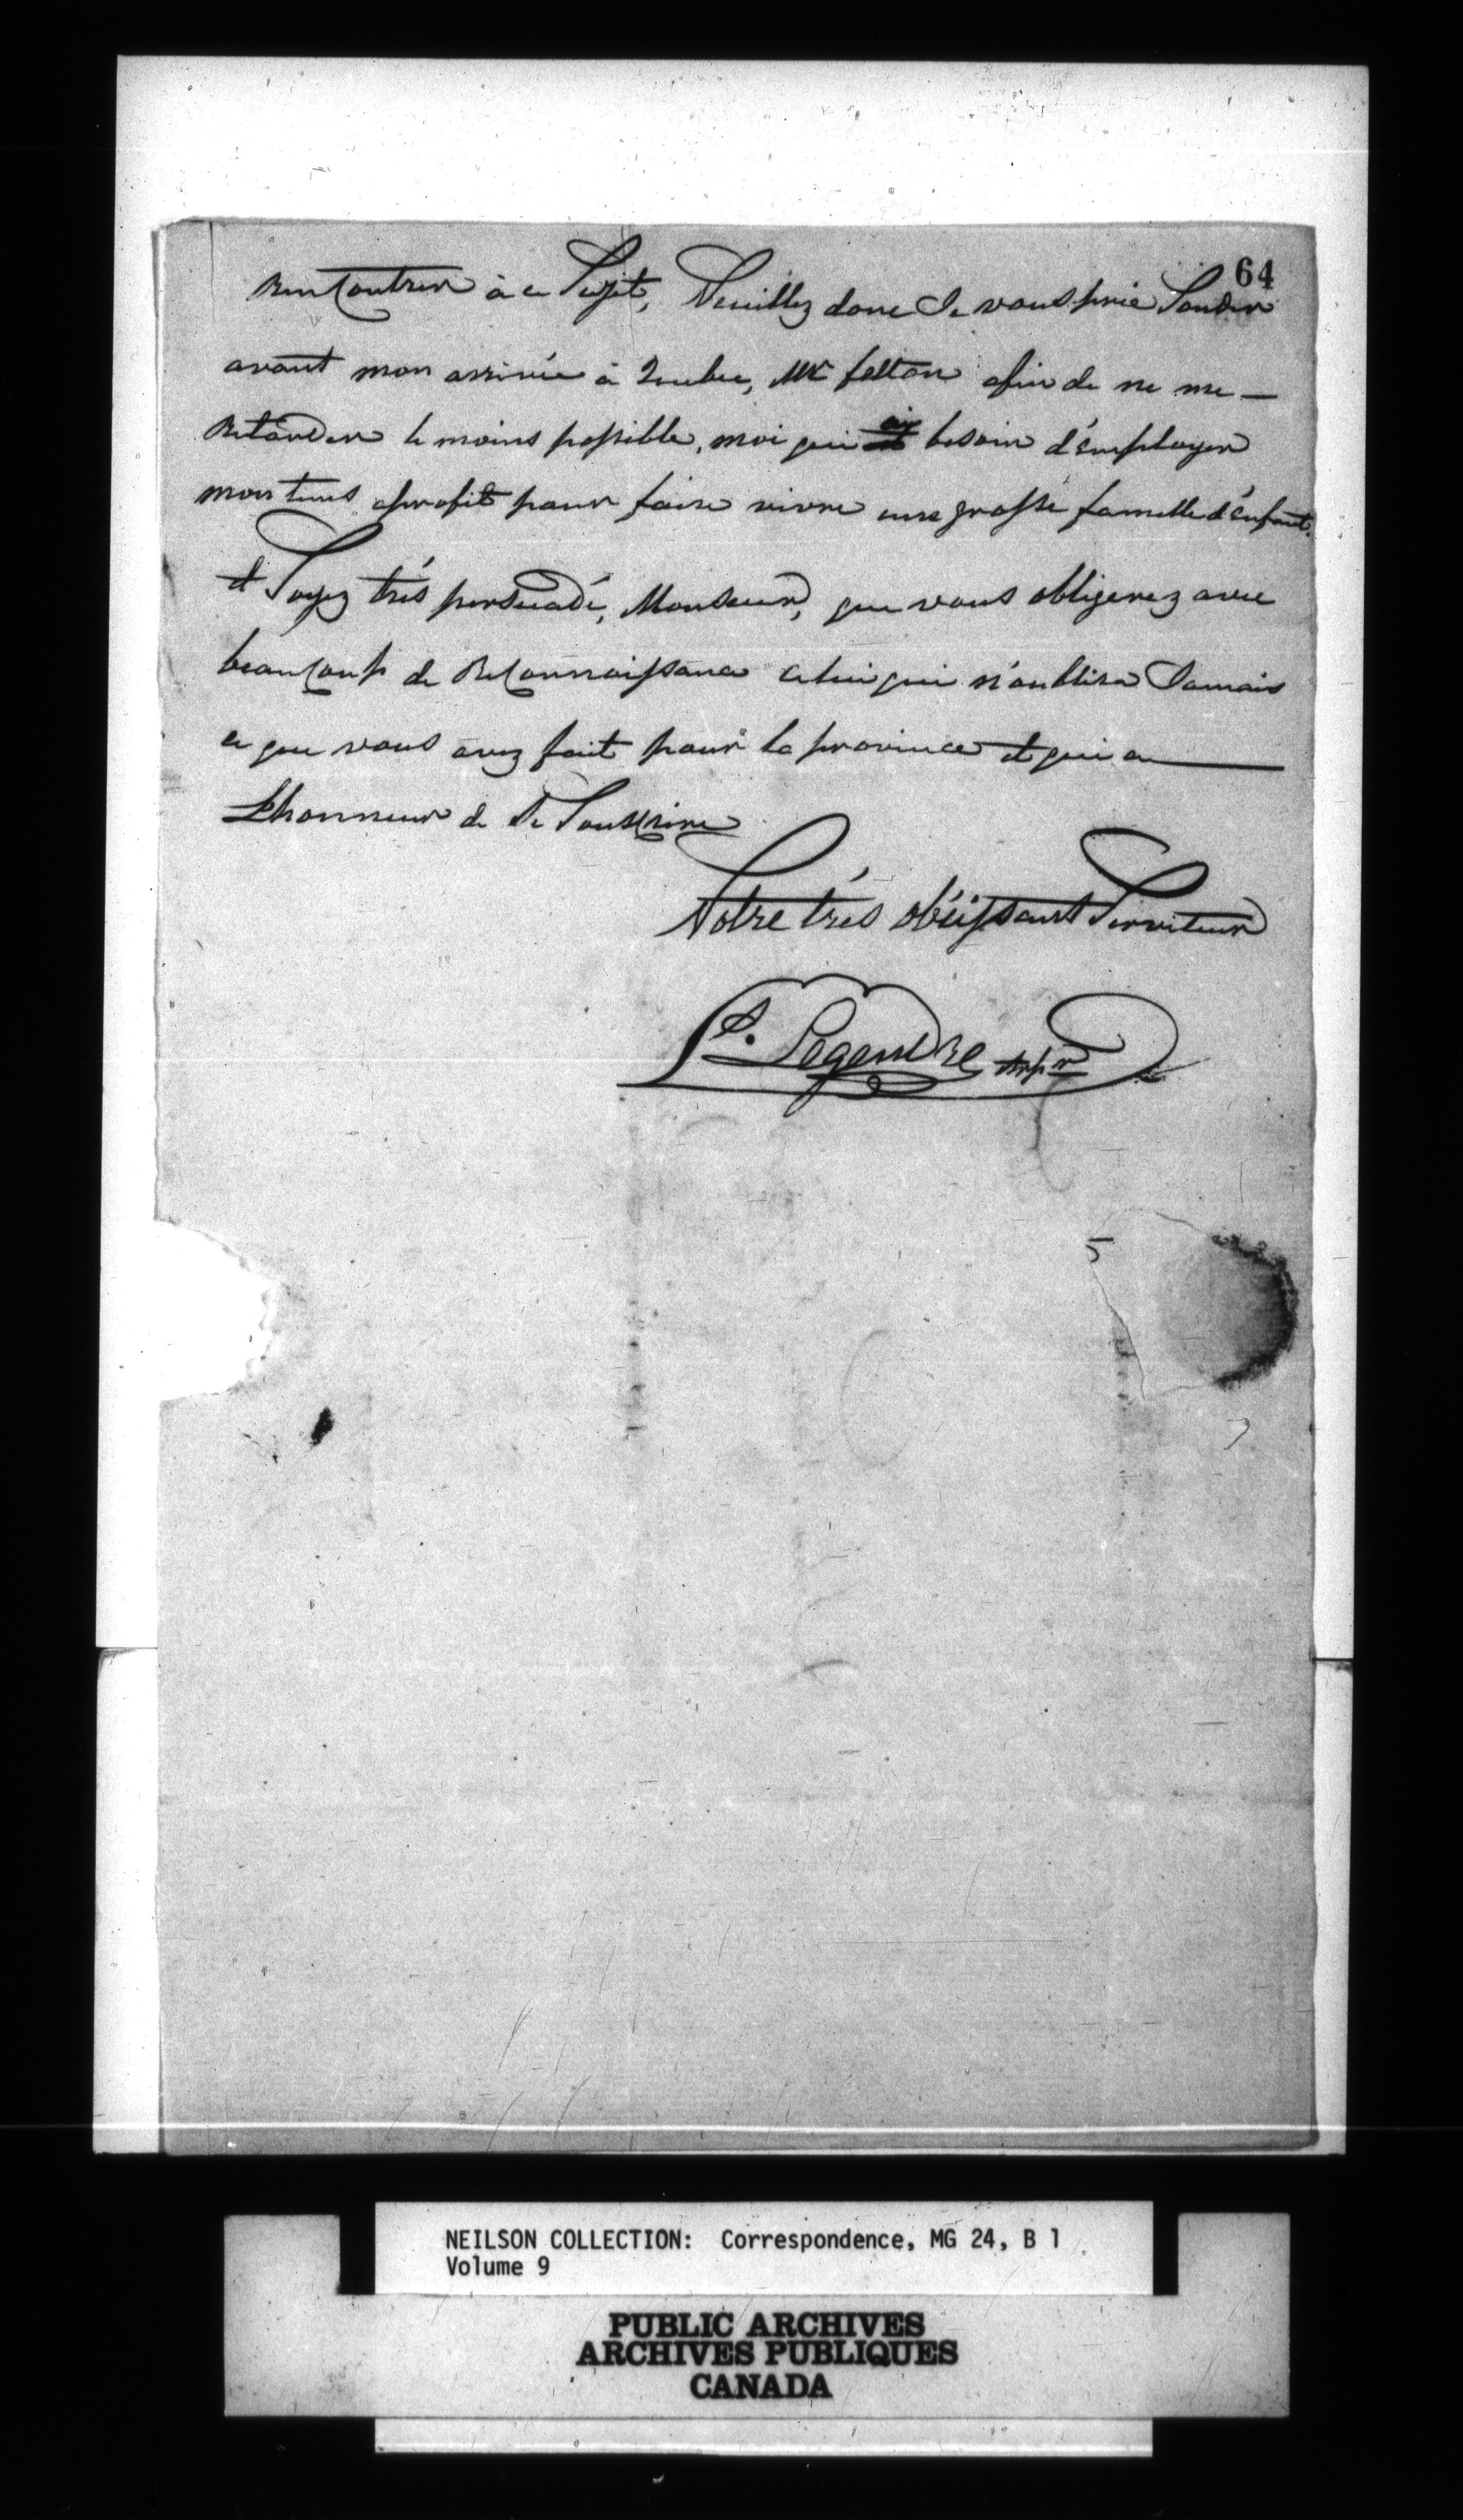 64
Rencontrer à ce Sujet, Veuillez donc Je vous prie Sonder
avant mon arrivée à Quebec, Mr felton afin de ne me —
Retarder le moins possible, moi qui ai besoin d'émployer
mon tems aprofit pour faire vivre une grosse famille d'énfant.
et Soyez trés persuadé, Monsieur, que vous obligerez avec
beaucoup de Reconnaissance celui qui n'oublira Jamais
ce que vous avez fait pour la province et qui a —
L'honneur de Se Souscrire
Votre trés obéissant Serviteur
Legendre Arpr
NEILSON COLLECTION: Correspondence, MG 24, B 1
Volume 9
PUBLIC ARCHIVES
ARCHIVES PUBLIQUES
CANADA